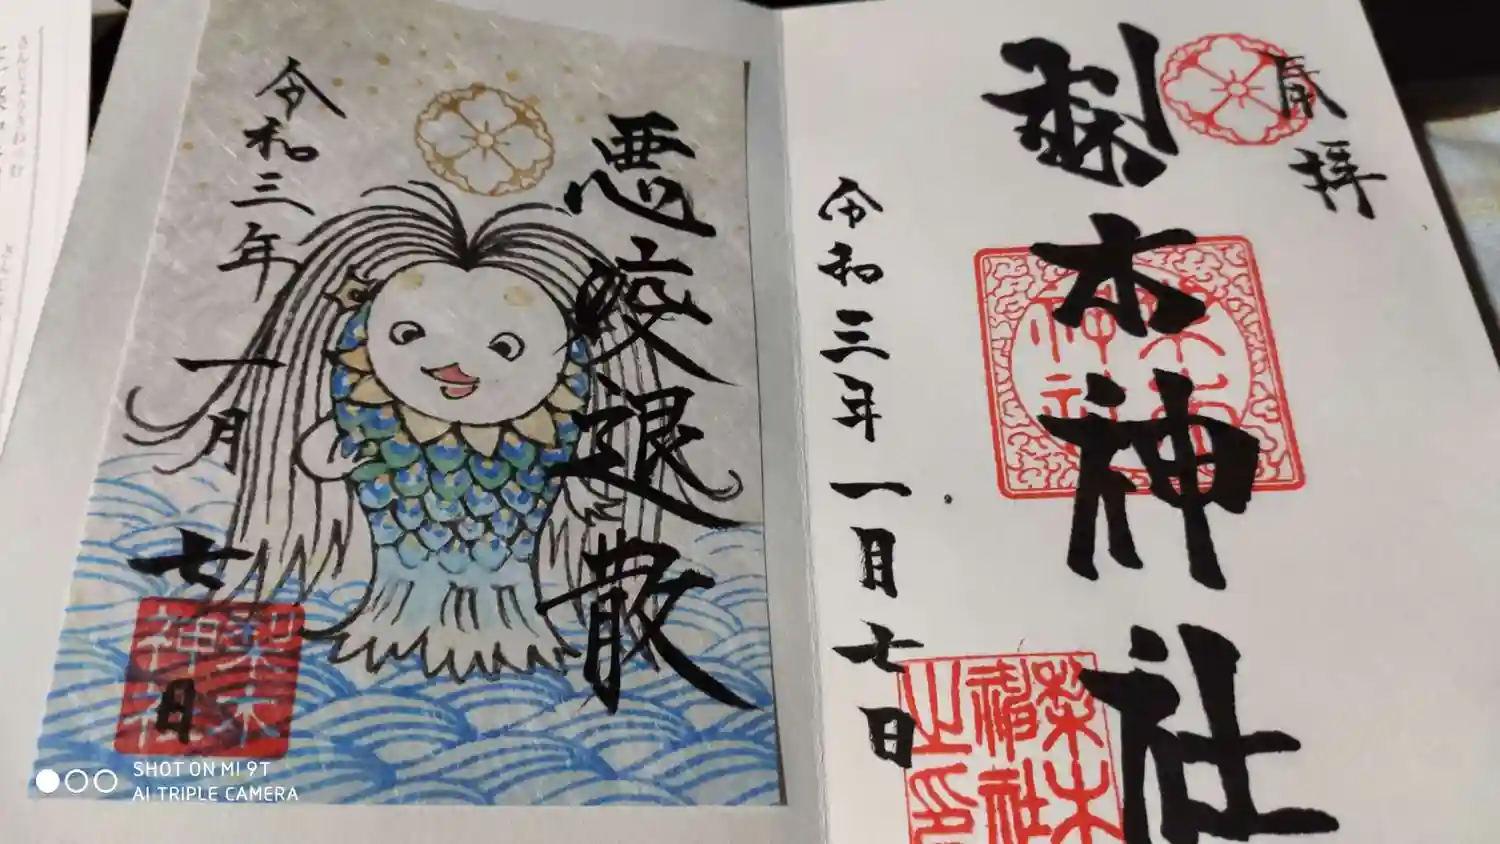 奉拝
梨木神社
梨木神社
令和三年一月七日
梨木神社之印
悪疫退散
令和三年一月七日
梨木神社
SHOT ON MI 9T
AI TRIPLE CAMERA